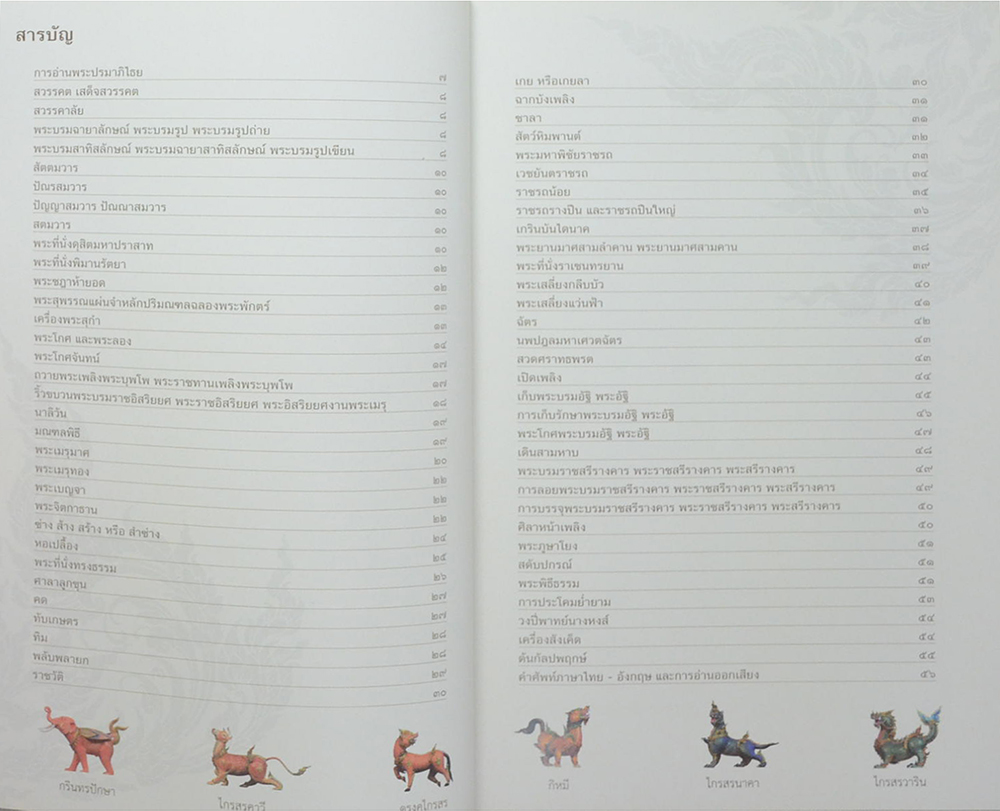 สารบัญ
การอ่านพระปรมาภิไธย ๗
สวรรคต เสด็จสวรรคต ๘
สวรรคาลัย ๘
พระบรมฉายาลักษณ์ พระบรมรูป พระบรมรูปถ่าย ๘
พระบรมสาทิสลักษณ์ พระบรมฉายาสาทิสลักษณ์ พระบรมรูปเขียน ๘
สัตตมวาร ๑๐
ปัณรสมวาร ๑๐
ปัญญาสมวาร ปัณณาสมวาร ๑๐
สตมวาร ๑๐
พระที่นั่งดุสิตมหาปราสาท ๑๐
พระที่นั่งพิมานรัตยา ๑๒
พระชฎาห้ายอด ๑๒
พระสุพรรณแผ่นจำหลักปริมณฑลฉลองพระพักตร์ ๑๓
เครื่องพระสุกำ ๑๓
พระโกศ และพระลอง ๑๔
พระโกศจันทน์ ๑๗
ถวายพระเพลิงพระบุพโพ พระราชทานเพลิงพระบุพโพ ๑๗
ริ้วขบวนพระบรมราชอิสริยยศ พระราชอิสริยยศ พระอิสริยยศงานพระเมรุ ๑๘
นาลิวัน ๑๙
มณฑลพิธี ๑๙
พระเมรุมาศ ๒๐
พระเมรุทอง ๒๒
พระเบญจา ๒๒
พระจิตกาธาน ๒๒
ซ่าง ส้าง สร้าง หรือ สำซ่าง ๒๔
หอเปลื้อง ๒๕
พระที่นั่งทรงธรรม ๒๖
ศาลาลูกขุน ๒๗
คด ๒๗
ทับเกษตร ๒๘
ทิม ๒๘
พลับพลายก ๒๙
ราชวัติ ๓๐
กรินทรปักษา
ไกรสรคาวี
ดุรงคไกรสร
เกย หรือเกยลา ๓๐
ฉากบังเพลิง ๓๑
ชาลา ๓๑
สัตว์หิมพานต์ ๓๒
พระมหาพิชัยราชรถ ๓๓
เวชยันตราชรถ ๓๔
ราชรถน้อย ๓๕
ราชรถรางปืน และราชรถปืนใหญ่ ๓๖
เกรินบันไดนาค ๓๗
พระยานมาศสามลำคาน พระยานมาศสามคาน ๓๘
พระที่นั่งราเชนทรยาน ๓๙
พระเสลี่ยงกลีบบัว ๔๐
พระเสลี่ยงแว่นฟ้า ๔๑
ฉัตร ๔๒
นพปฎลมหาเศวตฉัตร ๔๓
สวดศราทธพรต ๔๓
เปิดเพลิง ๔๔
เก็บพระบรมอัฐิ พระอัฐิ ๔๕
การเก็บรักษาพระบรมอัฐิ พระอัฐิ ๔๖
พระโกศพระบรมอัฐิ พระอัฐิ ๔๗
เดินสามหาบ ๔๘
พระบรมราชสรีรางคาร พระราชสรีรางคาร พระสรีรางคาร ๔๙
การลอยพระบรมราชสรีรางคาร พระราชสรีรางคาร พระสรีรางคาร ๔๙
การบรรจุพระบรมราชสรีรางคาร พระราชสรีรางคาร พระสรีรางคาร ๕๐
ศิลาหน้าเพลิง ๕๐
พระภูษาโยง ๕๑
สดับปกรณ์ ๕๑
พระพิธีธรรม ๕๑
การประโคมย่ำยาม ๕๓
วงปี่พาทย์นางหงส์ ๕๔
เครื่องสังเค็ด ๕๔
ต้นกัลปพฤกษ์ ๕๕
คำศัพท์ภาษาไทย - อังกฤษ และการอ่านออกเสียง ๕๖
กิหมี
ไกรสรนาคา
ไกรสรวาริน